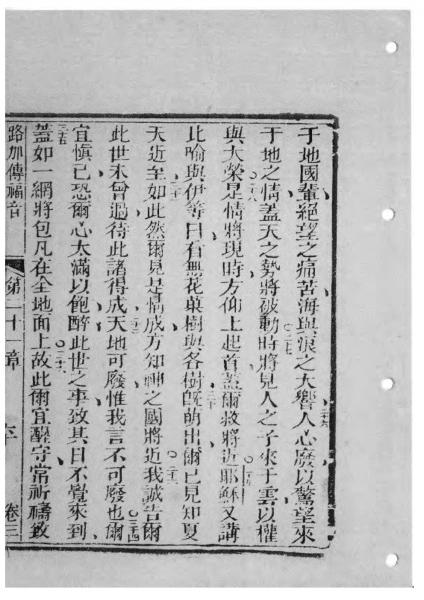 于地國輩絕望之痛苦海與浪之大響人心廢以驚望來
于地之情蓋天之勢將被動時將見人之子來于雲以權
與大榮是情將現時方仰上起首蓋爾救將近耶穌又講
比喻與伊等曰看無花菓樹與各樹旣萌出爾已見知夏
天近至如此然爾見是情成方知神之國將近我誠告爾
此世未曾過待此諸得成天地可廢惟我言不可廢也爾
宜慎已恐爾心太滿以飽醉此世之事致其日不覺來到
蓋如一網將包凡在全地面上故此爾宜醒守常祈禱致
路加傳福音 第二十一章 卷三